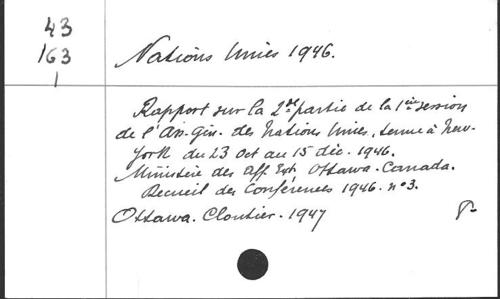 43
163
1
Nations Unies 1946.
Rapport sur la 2de partie de la 1ière session
de l'Ass. gén. des Nations Unies, tenue à New-
York du 23 oct au 15 déc. 1946.
Ministère des Aff. Ext. Ottawa. Canada.
Recueil des Conférences 1946. n°3.
Ottawa. Cloutier. 1947